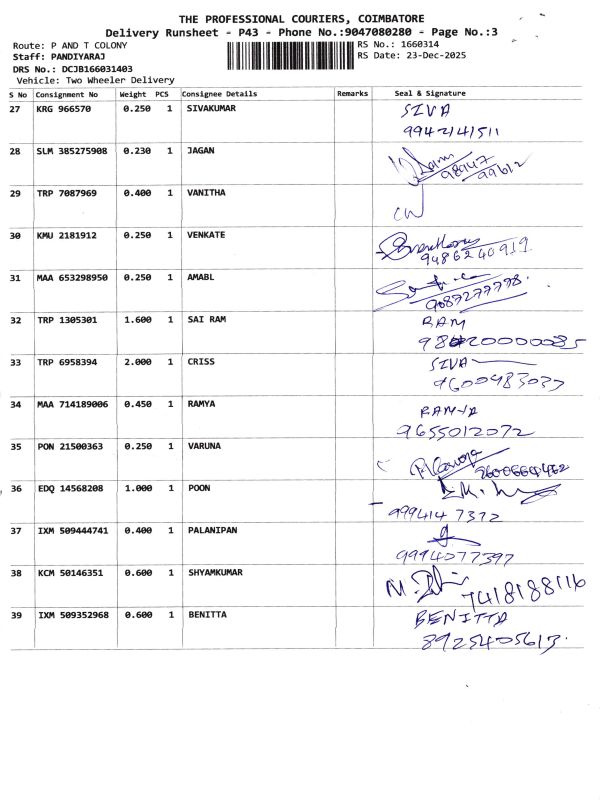 THE PROFESSIONAL COURIERS, COIMBATORE
Delivery Runsheet - P43 - Phone No.:9047080280 - Page No.:3
Route: P AND T COLONY
RS No.: 1660314
Staff: PANDIYARAJ
RS Date: 23-Dec-2025
DRS No.: DCJB166031403
Vehicle: Two Wheeler Delivery
S No Consignment No Weight PCS Consignee Details Remarks Seal & Signature
27 KRG 966570 0.250 1 SIVAKUMAR SIVA
9942141511
28 SLM 385275908 0.230 1 JAGAN
98947
99612
29 TRP 7087969 0.400 1 VANITHA
30 KMU 2181912 0.250 1 VENKATE
9486240919
31 MAA 653298950 0.250 1 AMABL
9087277778
32 TRP 1305301 1.600 1 SAI RAM RAM
33 TRP 6958394 2.000 1 CRISS SIVA
9600483037
34 MAA 714189006 0.450 1 RAMYA RAMYA
9655012072
35 PON 21500363 0.250 1 VARUNA
9600664462
36 EDQ 14568208 1.000 1 POON
9994147372
37 IXM 509444741 0.400 1 PALANIPAN
9994077397
38 KCM 50146351 0.600 1 SHYAMKUMAR
7418188116
39 IXM 509352968 0.600 1 BENITTA BENITTA
8925405613